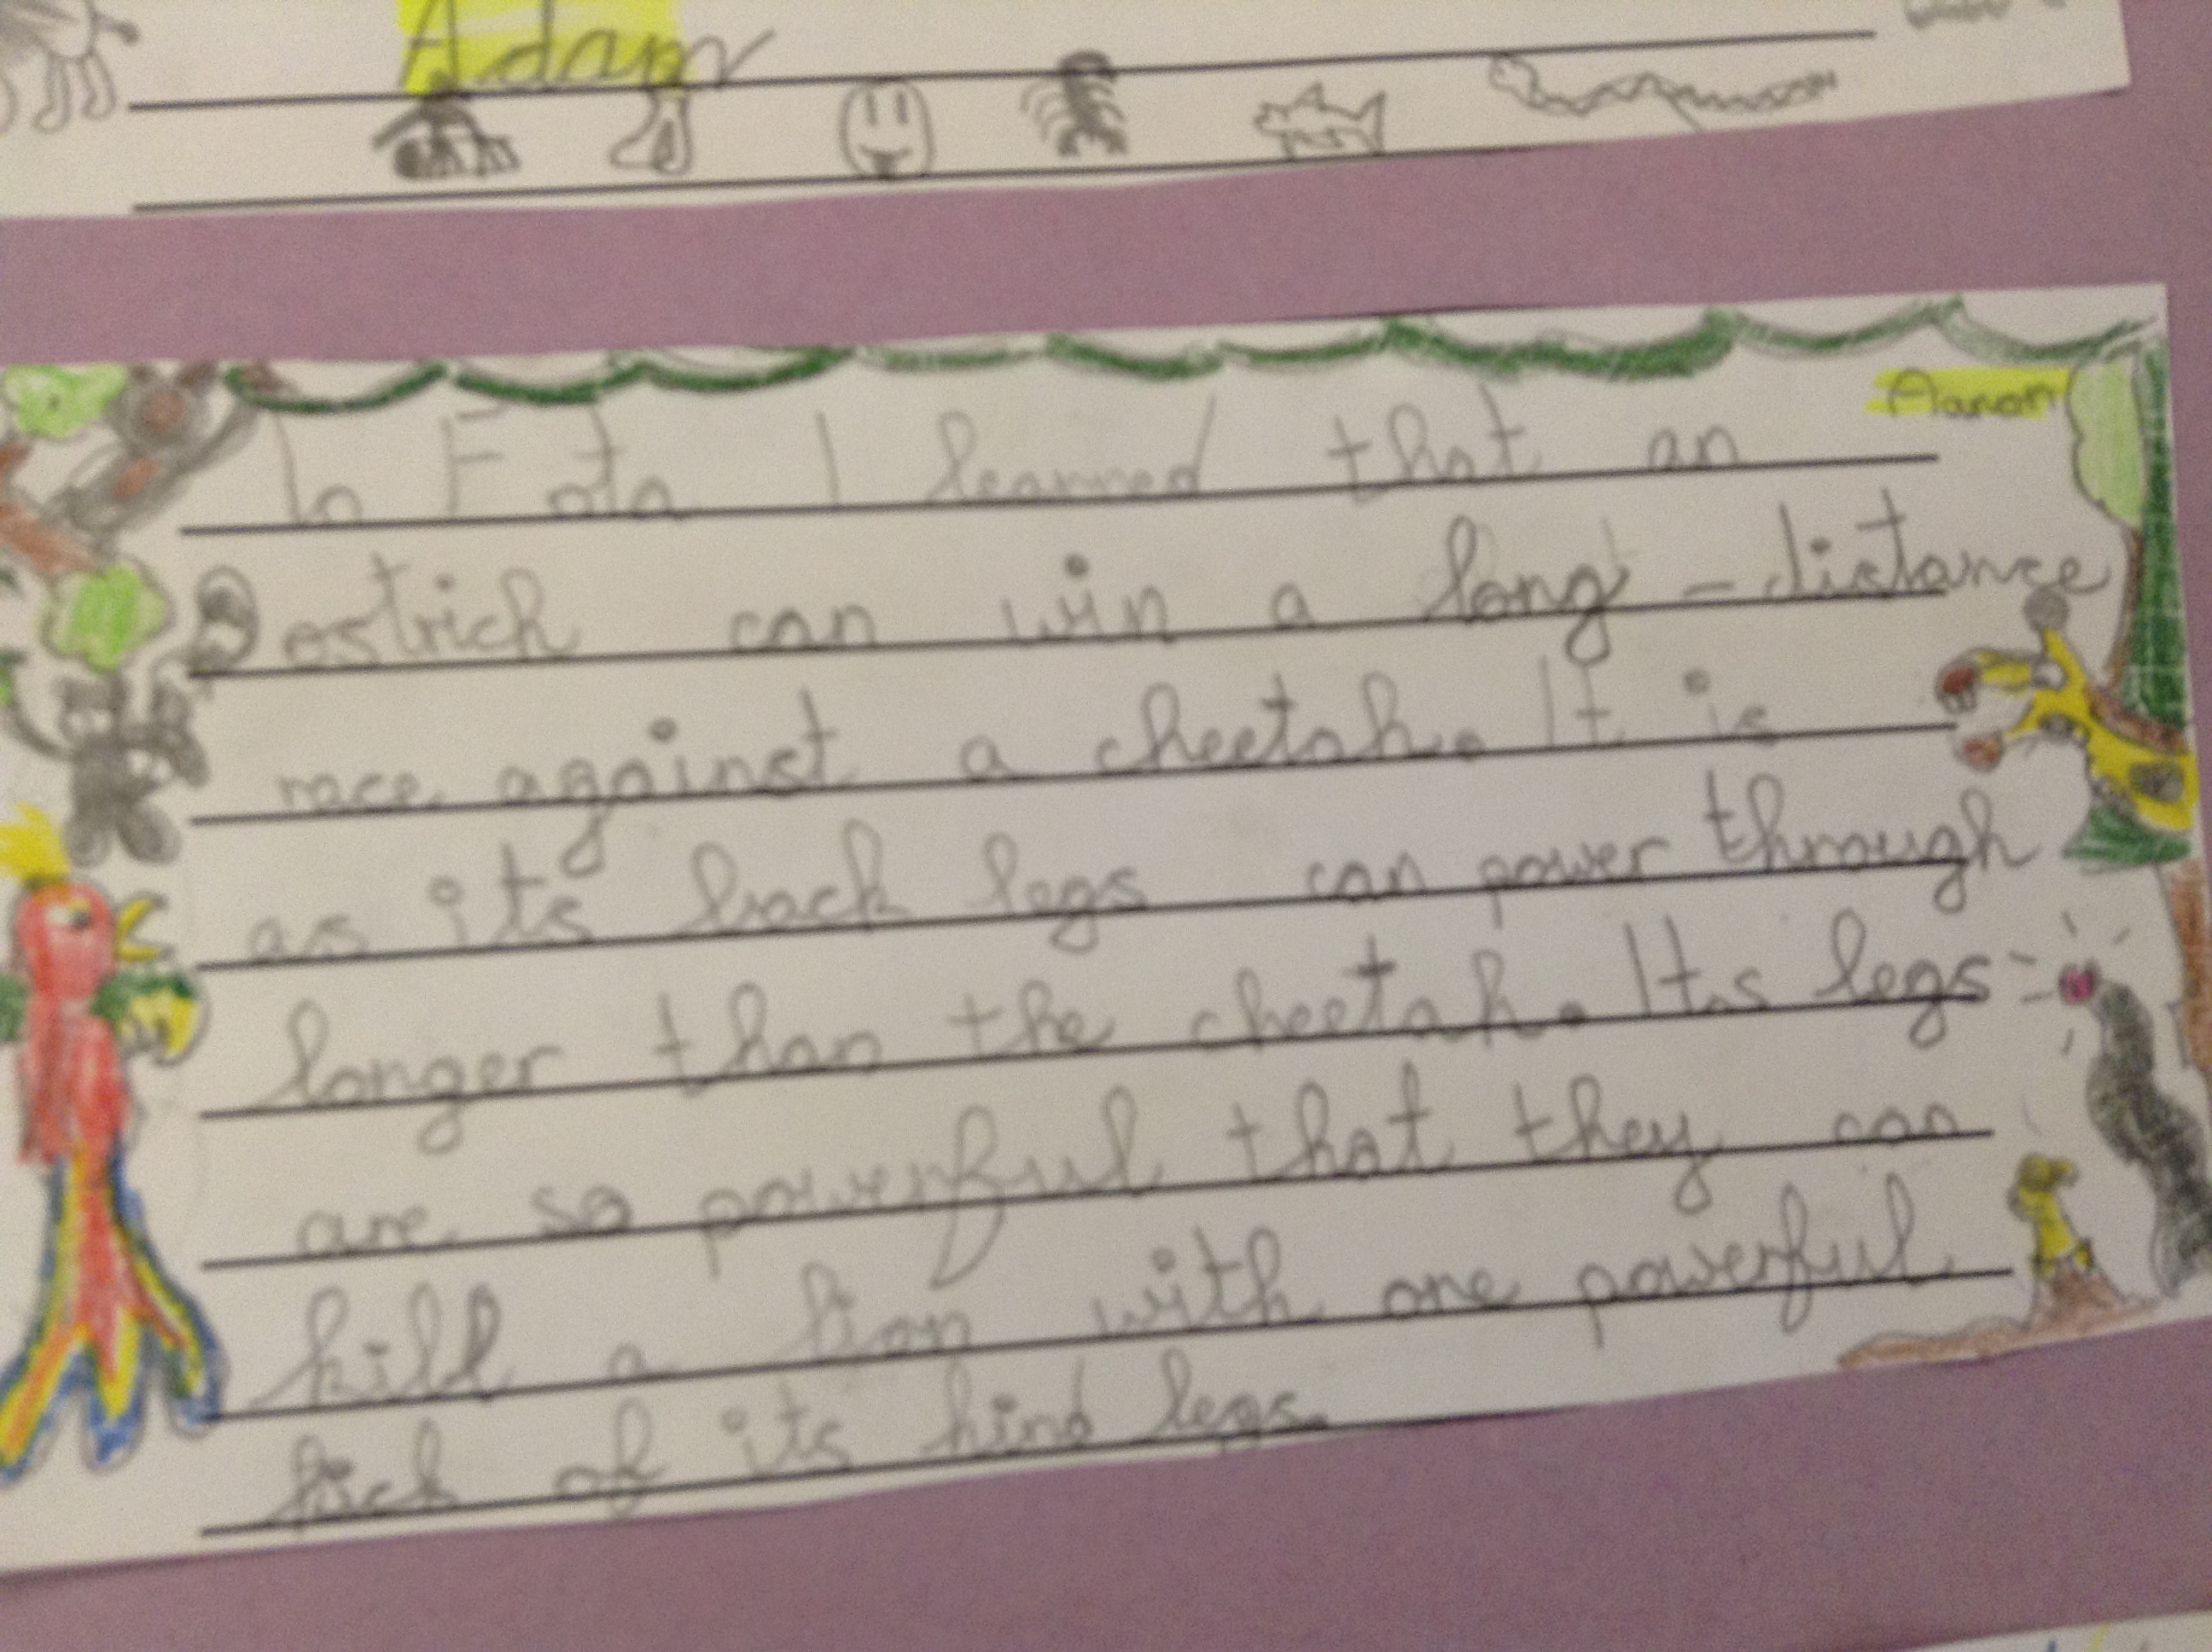 Adam
Aaron
In Fota I learned that an
ostrich can win a long-distance
race against a cheetah. It is
as its back legs can power through
longer than the cheetah. Its legs
are so powerful that they can
kill a lion with one powerful
kick of its hind legs.